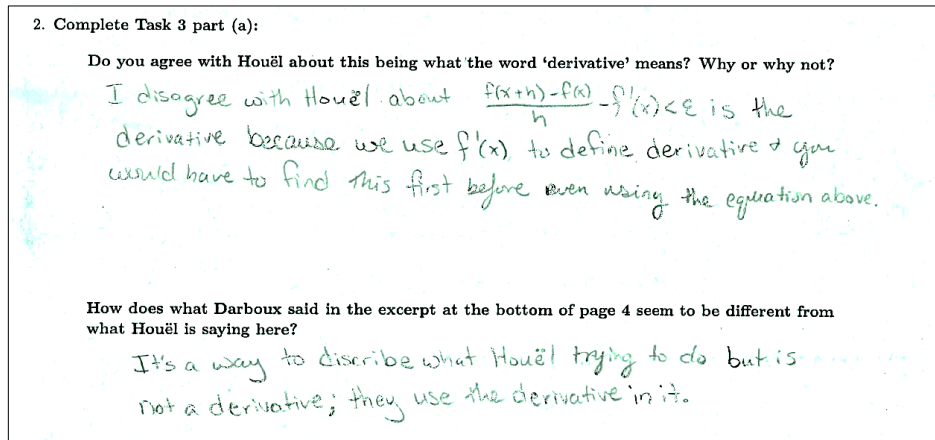 2. Complete Task 3 part (a):
Do you agree with Houël about this being what the word ‘derivative’ means? Why or why not?
I disagree with Houël about f(x+h)-f(x)/h - f'(x) < ε is the
derivative because we use f'(x) to define derivative & you
would have to find this first before even using the equation above.
How does what Darboux said in the excerpt at the bottom of page 4 seem to be different from
what Houël is saying here?
It's a way to discribe what Houël trying to do but is
not a derivative; they use the derivative in it.